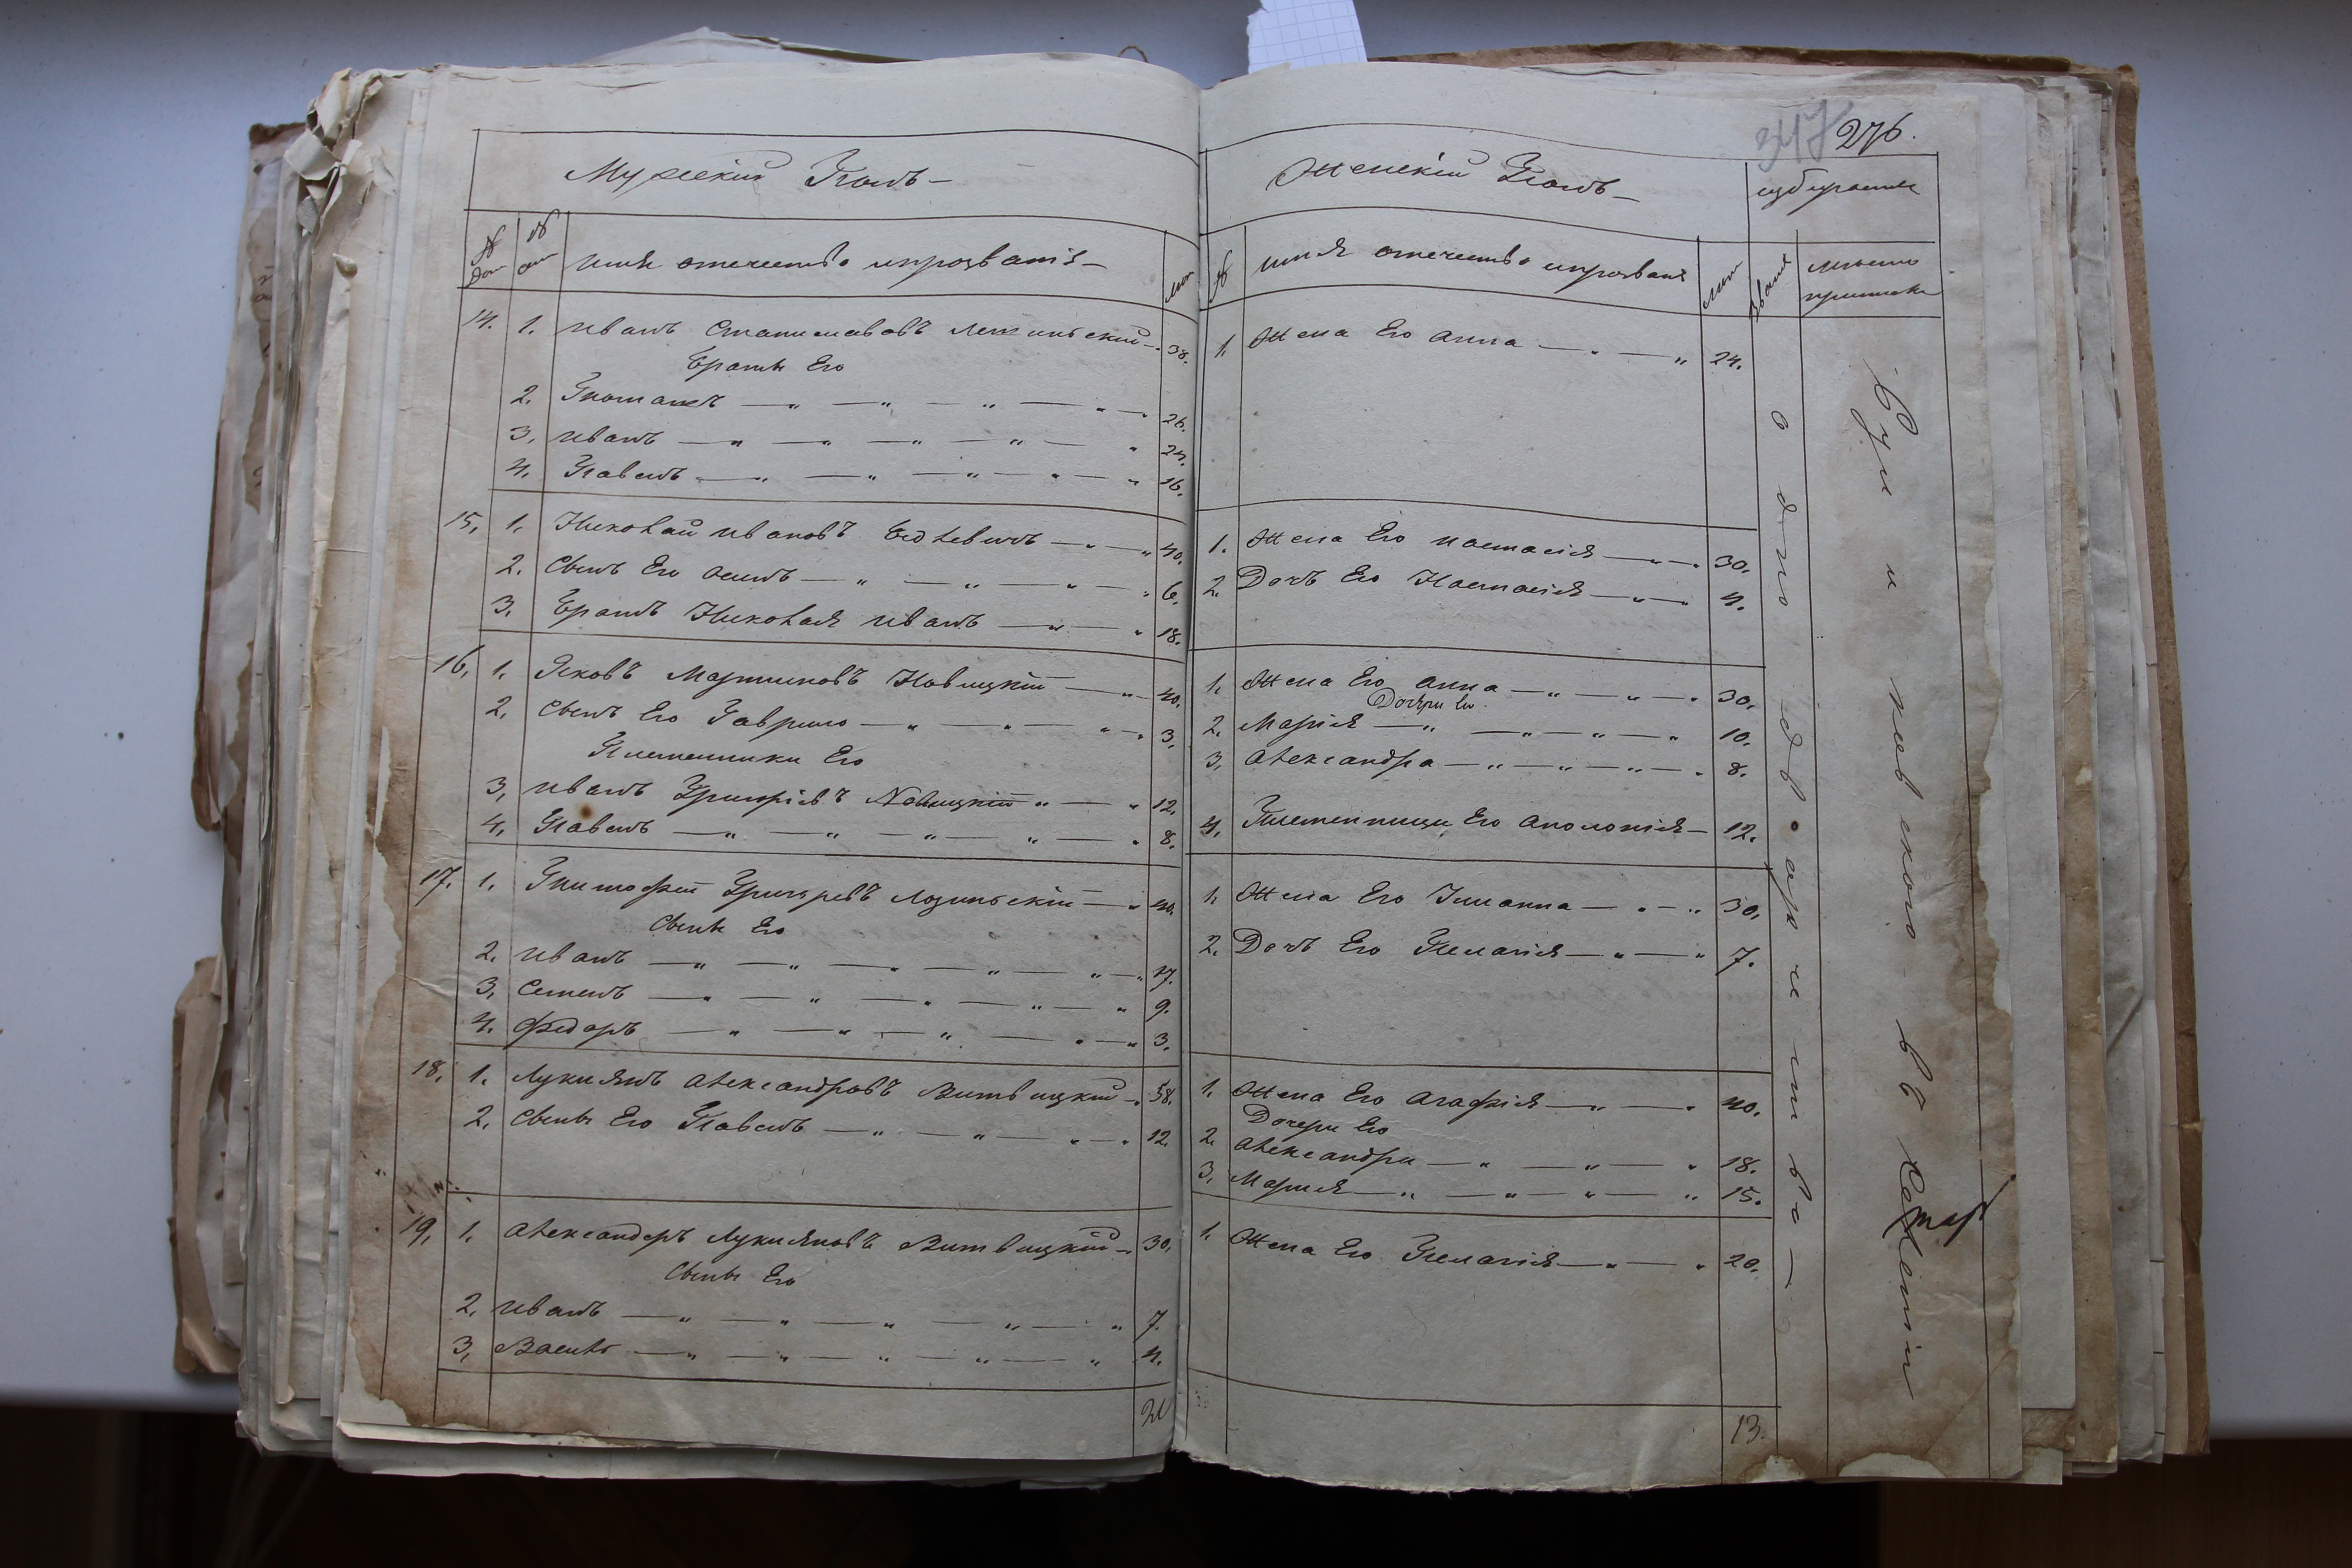 347 276.
Мужескій Полъ —
№ дом
№ душ
имя отечество ипрозваніе —
лет
14. 1. иванъ Станиславовъ —" 38.
Братья Его
2. Томашъ — " — " — " — " — " 26.
3. иванъ — " — " — " — " — " 24.
4. Павелъ — " — " — " — " — " 16.
15. 1. Николай ивановъ — " — " 40.
2. Сынъ Его осипъ — " — " — " — " 6.
3. Братъ Николая иванъ — " — " 18.
16. 1. Яковъ Мартиновъ Новицкій — " 40.
2. Сынъ Его Гаврило — " — " — " — " 3.
Племенники Его
3. иванъ Григоріевъ Новицкій " — " 12.
4. Павелъ — " — " — " — " — " 8.
17. 1. Тимофей Лозинскій — " 40.
Сыны Его
2. иванъ — " — " — " — " — " — " 17.
3. Семенъ — " — " — " — " — " 9.
4. Федоръ — " — " — " — " — " 3.
18. 1. Лукиянъ Александровъ Витвицкій — " 58.
2. Сынъ Его Павелъ — " — " — " — " 12.
19. 1. Александеръ Лукияновъ Витвицкій — " 30.
Сыны Его
2. иванъ — " — " — " — " — " 7.
3. Василь — " — " — " — " — " 4.
21
Женскій Полъ —
избираемие
№
имя отечество ипрозваніе
лет
званіе
место приписки
1. Жена Его анна — " — " 24.
1. Жена Его настасія — " — " 30.
2. Дочъ Его Настасія — " — " 4.
1. Жена Его анна — " — " — " 30.
Дочери Его
2. Марія — " — " — " — " 10.
3. Александра — " — " — " — " 8.
4. Племенница Его аполонія — 12.
1. Жена Его — " — " 30.
2. Дочъ Его Пелагія — " — " 7.
1. Жена Его агафія — " — " 40.
Дочери Его
2. Александра — " — " — " 18.
3. Мария — " — " — " — " 15.
1. Жена Его Пелагія — " — " 20.
13.
однодворчество —
въ